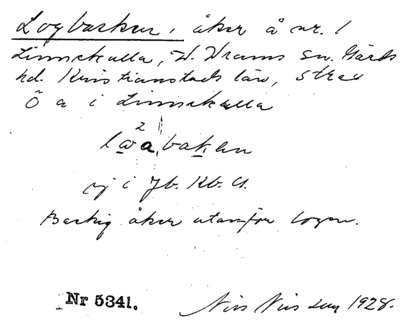 Logbacken, åker å nr. 1
Linnekulla, V. Vrams sn. Gärds
hd. Kristianstads län, strax
Ö a i Linnekulla
2
lωabakan
ej i Jb. Kb. U.
Backig åker utanför logen.
Nr 5341.
Nils Nilsson 1928.